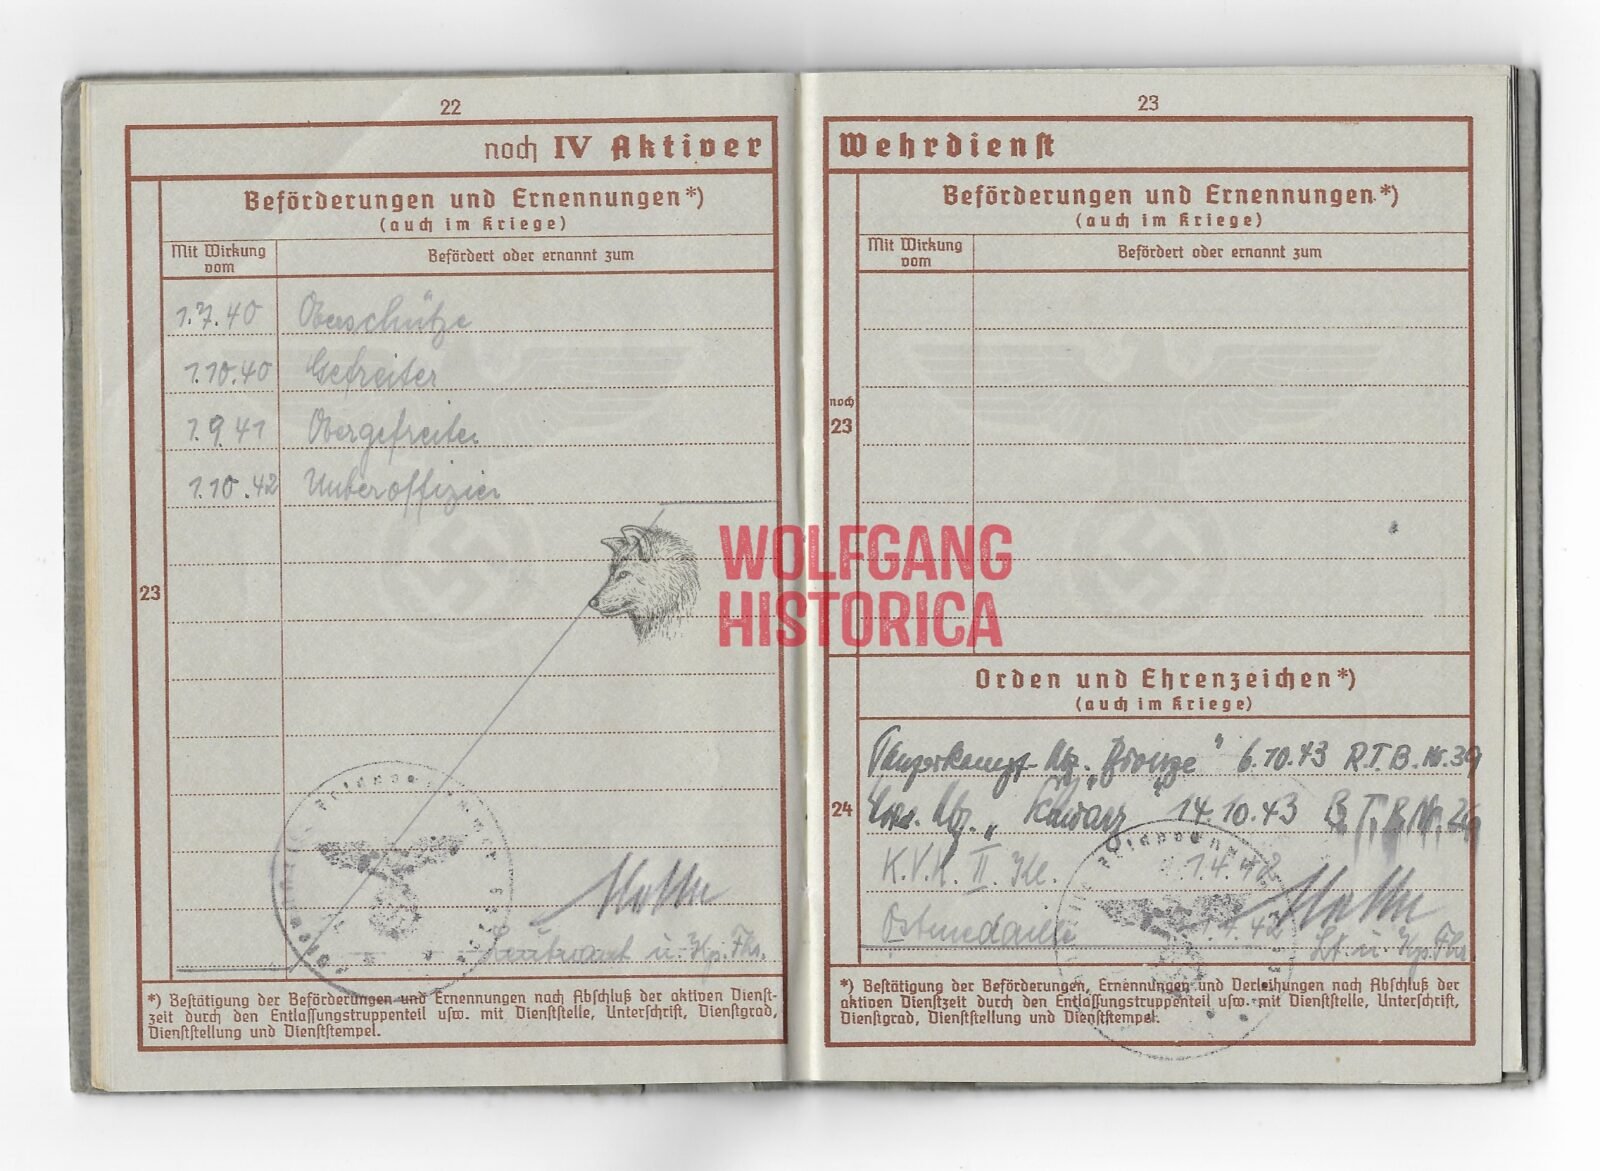 22
noch IV Aktiver
Beförderungen und Ernennungen*)
(auch im Kriege)
Mit Wirkung vom
Befördert oder ernannt zum
1.7.40 Oberschütze
1.10.40 Gefreiter
1.9.41 Obergefreiter
1.10.42 Unteroffizier
23
Leutnant u. Kp. Fhr.
*) Bestätigung der Beförderungen und Ernennungen nach Abschluß der aktiven Dienst-
zeit durch den Entlassungstruppenteil usw. mit Dienststelle, Unterschrift, Dienstgrad,
Dienststellung und Dienststempel.
WOLFGANG
HISTORICA
23
Wehrdienst
Beförderungen und Ernennungen*)
(auch im Kriege)
Mit Wirkung vom
Befördert oder ernannt zum
noch
23
Orden und Ehrenzeichen*)
(auch im Kriege)
Panzerkampf-Abz. „Bronze" 6.10.43 R.T.B. Nr. 39
24
Abz. „Schwarz" 14.10.43
K.V.K. II. Kl. 1.4.42
Ostmedaille 1.4.42
Lt. u. Kp. Fhr
*) Bestätigung der Beförderungen, Ernennungen und Verleihungen nach Abschluß der
aktiven Dienstzeit durch den Entlassungstruppenteil usw. mit Dienststelle, Unterschrift,
Dienstgrad, Dienststellung und Dienststempel.